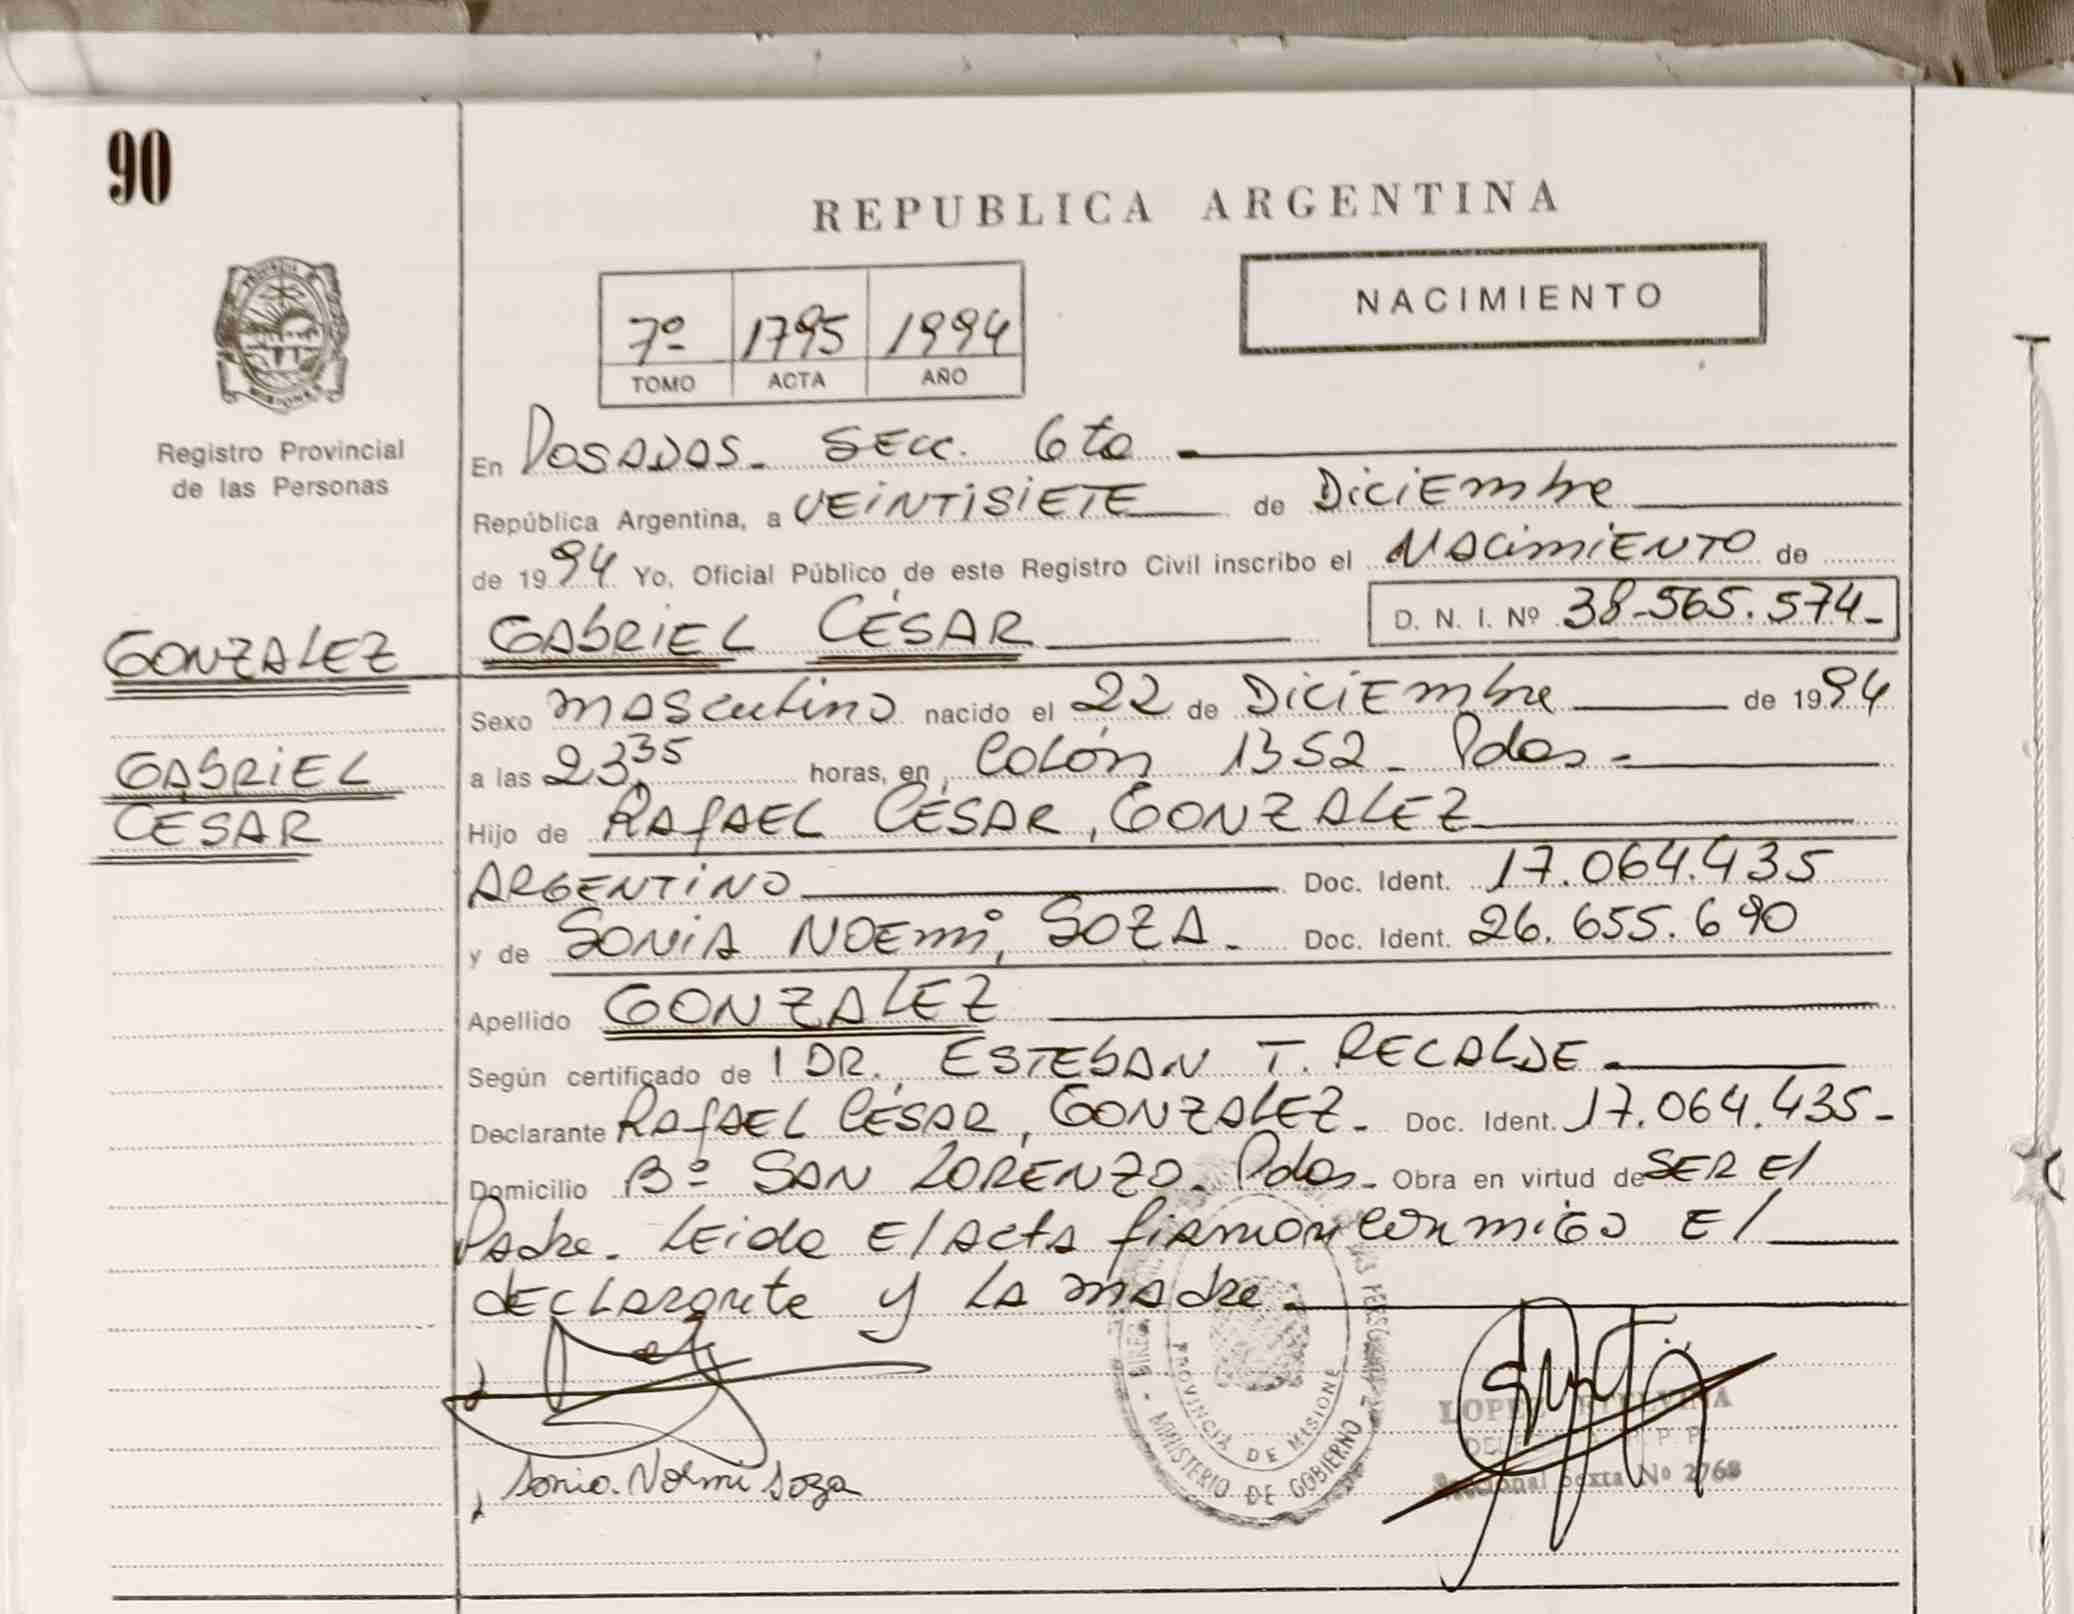 90
REPUBLICA ARGENTINA
NACIMIENTO
7º 1795 1994
TOMO ACTA AÑO
Registro Provincial
de las Personas
En POSADAS. SECC. 6ta
República Argentina, a VEINTISIETE de DiciEmbre
de 1994 Yo, Oficial Público de este Registro Civil inscribo el NACimiENTO de
GONZALEZ
GABRIEL CÉSAR D. N. I. Nº 38.565.574-
GABRIEL
CESAR
Sexo masculino nacido el 22 de DiciEmbre de 1994
a las 23,35 horas, en Colón 1352 - Pdas -
Hijo de RAfAEL CÉSAR, GONZALEZ
ARGENTINO Doc. Ident. 17.064.435
y de SONIA NOEmi, SOZA. Doc. Ident. 26.655.690
Apellido GONZALEZ
Según certificado de DR. ESTEBAN T. RECALDE
Declarante RAfAEL CÉSAR, GONZALEZ. Doc. Ident. 17.064.435-
Domicilio Bº SAN LORENZO. Pdas. Obra en virtud de SER El
Padre. Leida El Acta firman conmigo El
dEcLarante y La madre.
Sonia Noemi Soza
PROVINCIA DE MISIONES
MINISTERIO DE GOBIERNO
LOPEZ
Seccional Sexta Nº 2768